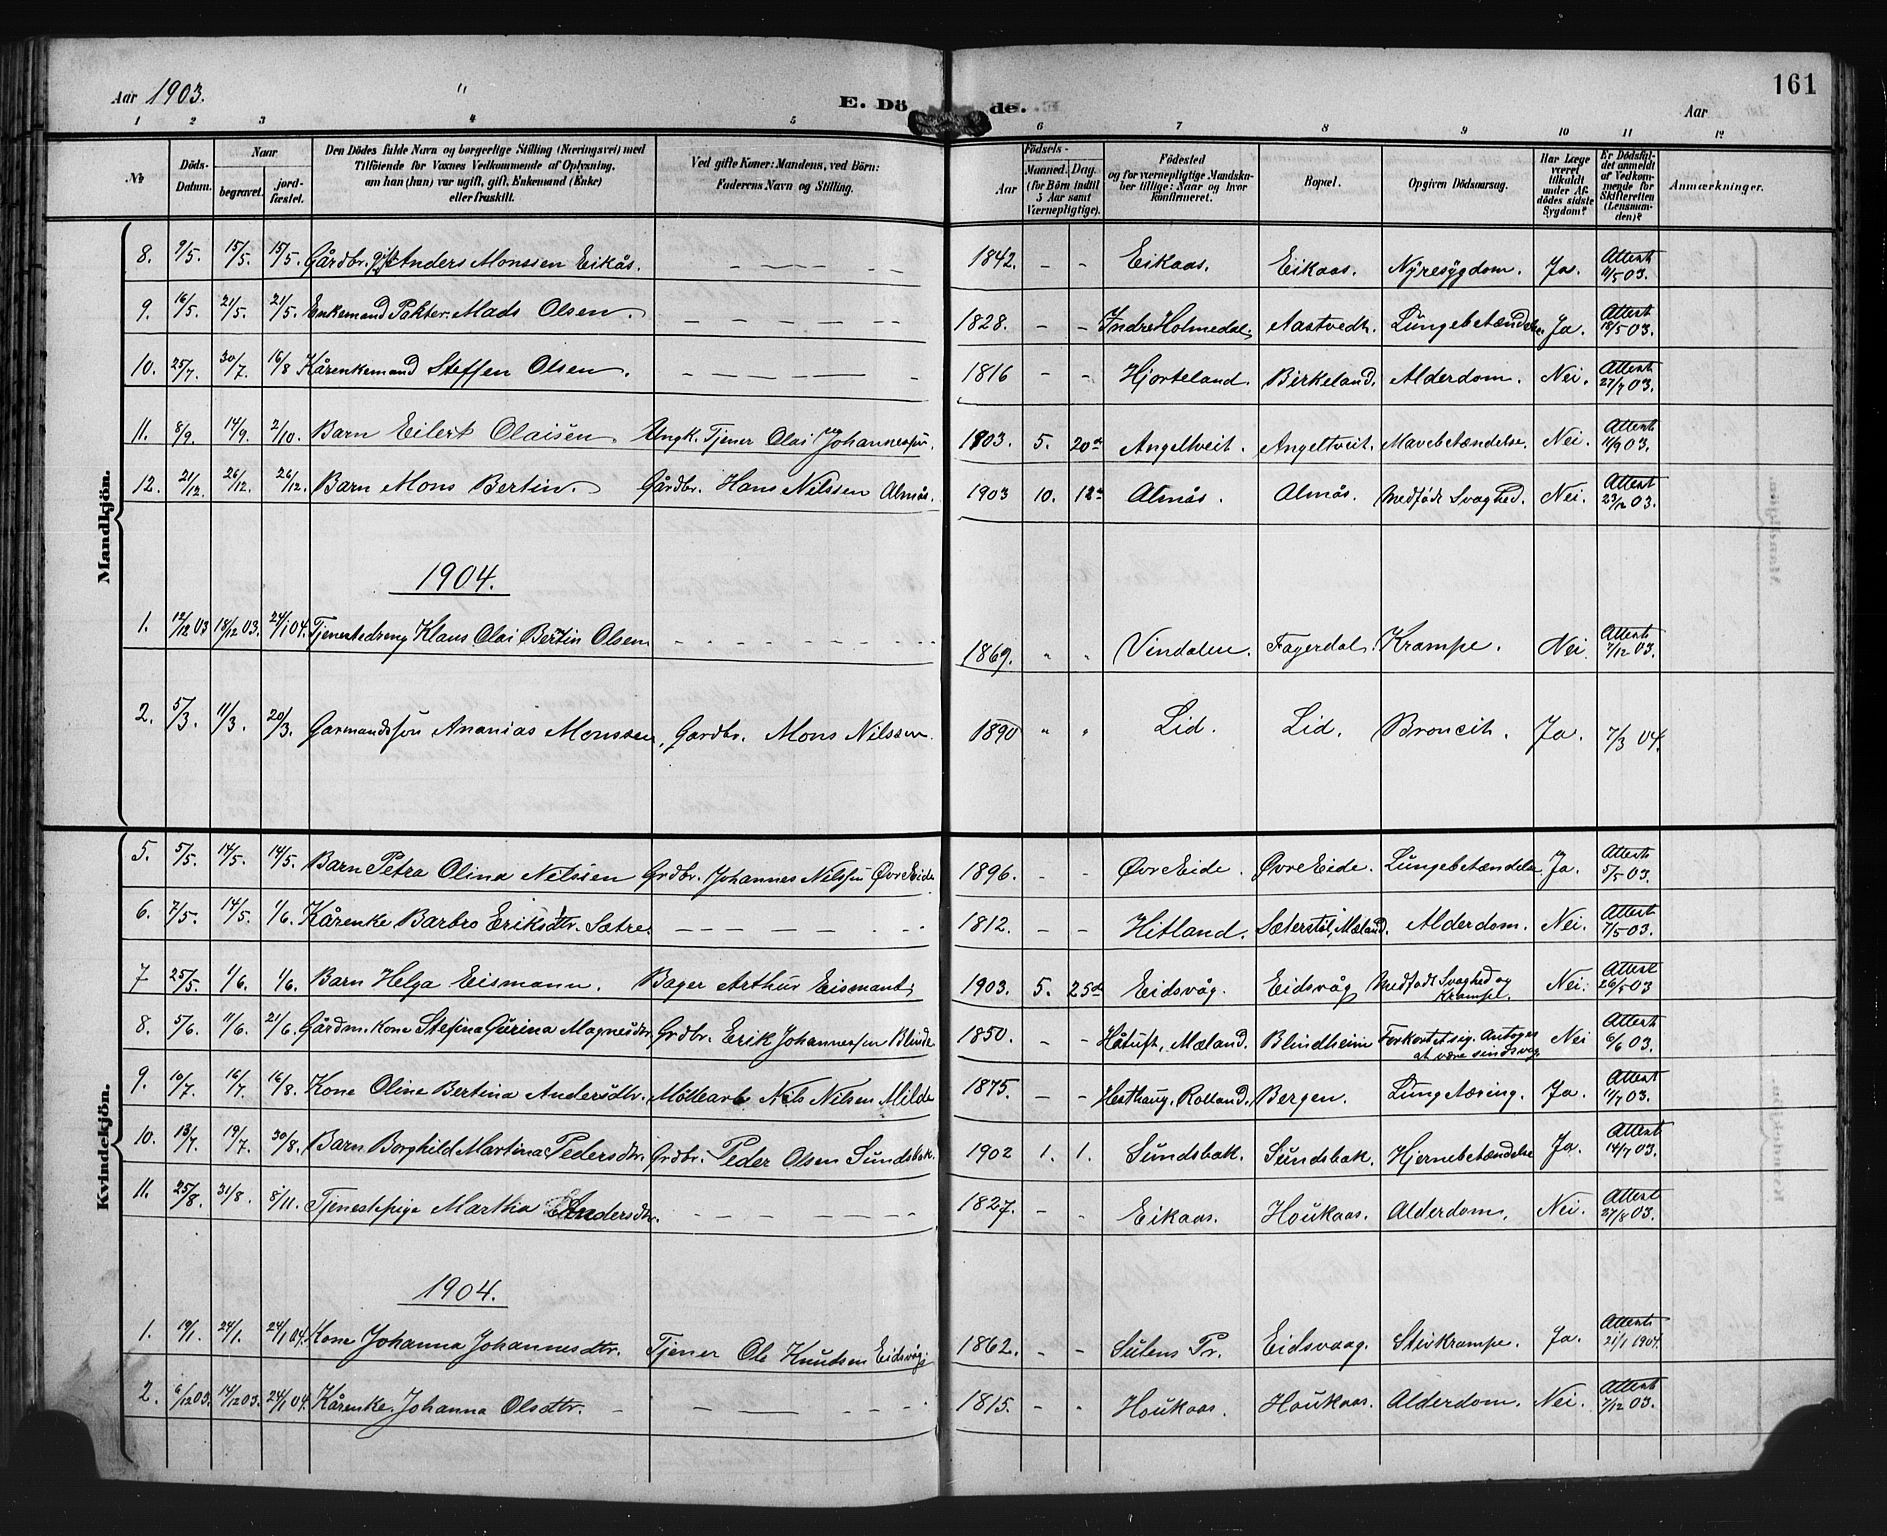 Aar 1903. " E. Dö de. Aar 161
1 2 3 4 5 6 7 8 9 10 11 12
№ Döds-Datum. Naar begravet. jordfæstet. Den Dödes fulde Navn og borgerlige Stilling (Næringsvei) med Tilföiende for Voxnes Vedkommende af Oplysning, om han (hun) var ugift, gift, Enkemand (Enke) eller fraskilt. Ved gifte Koner: Mandens, ved Börn: Faderens Navn og Stilling. Aar Födsels- Maaned. Dag. (for Börn indtil 5 Aar samt Værnepligtige). Födested og for værnepligtige Mandskaber tillige: Naar og hvor konfirmeret. Bopæl. Opgiven Dödsaarsag. Har Læge været tilkaldt under Afdödes sidste Sygdom? Er Dödsfaldet anmeldt af Vedkommende for Skifteretten (Lensmanden)? Anmærkninger.
Mandkjön.
8. 9/5. 15/5. 15/5. Gårdbr. gift Anders Monssen Eikås. 1842. - - Eikaas. Eikaas. Nyresygdom. Ja. Attest 9/5 03.
9. 16/5. 21/5. 21/5. Enkemand Pakter. Mads Olsen. 1828. - - Indre Holmedal. Aastvedt. Lungebetændelse. Ja. Attest 18/5 03.
10. 25/7. 30/7. 16/8 Kårenkemand Steffen Olsen. 1816 - - Hjorteland. Birkeland. Alderdom. Nei. Attest 27/7 03.
11. 8/9. 14/9. 2/10. Barn Eilert Olaisen. Ungk. Tjener Olai Johannessen. 1803. 5. 20de Angeltveit. Angeltveit. Mavebetændelse. Nei. Attest 11/9 03.
12. 21/12. 26/12. 26/12. Barn Mons Bertin. Gårdbr. Hans Nilssen Almås. 1903 10. 12te Almås. Almås. Medfødt Svaghed. Nei. Attest 23/12 03.
1904.
1. 12/12 03 18/12 03. 24/1 04. Tjenestedreng Klaus Olai Bertin Olsen 1869. " " Vindalen. Fagerdal. Krampe. Nei. Attest 7/12 03.
2. 5/3. 11/3. 20/3. Garmandssøn Ananias Monssen. Gardbr. Mons Nilssen. 1890 " " Lid. Lid. Broncit. Ja. 7/3 04.
Kvindekjön.
5. 5/5. 14/5. 14/5. Barn Petra Olina Nilssen Grdbr. Johannes Nilssen Øvre Eide 1896. - - Øvr Eide. Øvre Eide. Lungebetændelse Ja. Attest 5/5 03.
6. 7/5. 14/5. 1/6. Kårenke Barbro Eriksdtr. Sætre. 1812. - - Hitland. Sæterstøl, Mæland. Alderdom. Nei. Attest 7/5 03.
7 25/5. 1/6. 1/6. Barn Helga Eismann. Bager Arthur Eismant 1903. 5. 25de Eidsvåg. Eidsvåg Medfødt Svaghed og Krampe. Nei. Attest 26/5 03
8. 5/6. 11/6. 21/6. Gårdm. Kone Stefina Gurina Magnesdtr. Grdbr. Erik Johannessen Blinde 1850. - - Håtuft, Mæland. Blindheim Forkortet sig. Antoges at være sindssvag Nei Attest 6/6 03.
9. 10/7. 16/7. 16/8. Kone Oline Bertina Andersdtr. Møllearb Nils Nilsen Milde 1875. - - Hesthaug, Rolland. Bergen. Lungetæring. Ja. Attest 11/7 03.
10. 13/7. 19/7. 30/8. Barn Borghild Martina Pedersdtr. Grdbr. Peder Olsen Sundsbak. 1902 1. 1. Sundsbak. Sundsbak. Hjernebetændelse Ja. Attest 14/7 03.
11. 25/8. 31/8. 8/11. Tjenestepige Martha Andersdtr. 1827. - - Eikaas. Houkaas. Alderdom. Nei. Attest 27/8 03.
1904.
1. 19/1. 24/1. 24/1 04. Kone Johanna Johannesdtr. Tjener Ole Knudsen Eidsvåg. 1862. - - Sulens Pr. Eidsvaag. Stivkrampe. Ja. Attest 21/1 1904.
2. 6/12 03. 14/12 03. 24/1 04. Kårenke. Johanna Olsdtr. 1815. - - Houkaas. Houkaas. Alderdom. Nei. Attest 7/12 03.